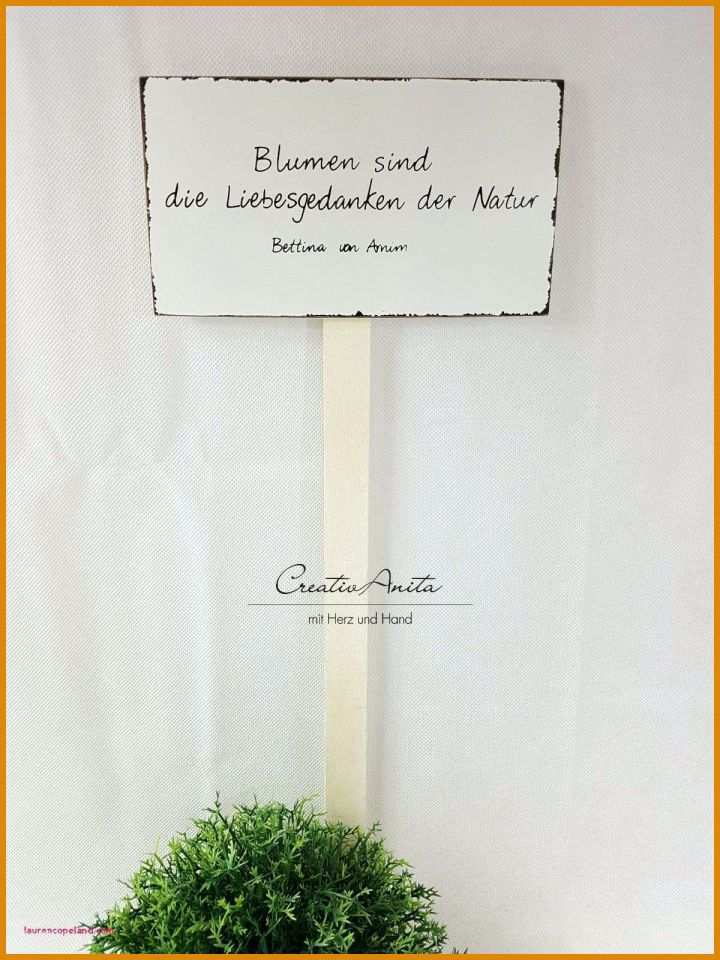 Blumen sind
die Liebesgedanken der Natur
Bettina von Arnim
CreativAnita
mit Herz und Hand
laurencopeland.com